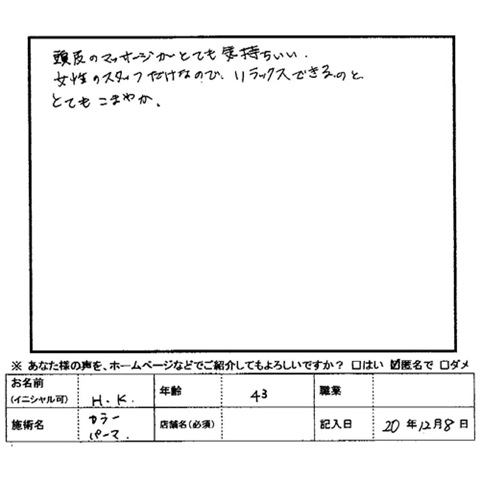 頭皮のマッサージがとても気持ちいい.
女性のスタッフだけなので、リラックスできるのと
とてもこまやか。
※ あなた様の声を、ホームページなどでご紹介してもよろしいですか? □はい ☑匿名で □ダメ
お名前(イニシャル可) H.K. 年齢 43 職業
施術名 カラー パーマ. 店舗名(必須) 記入日 20 年12月8日